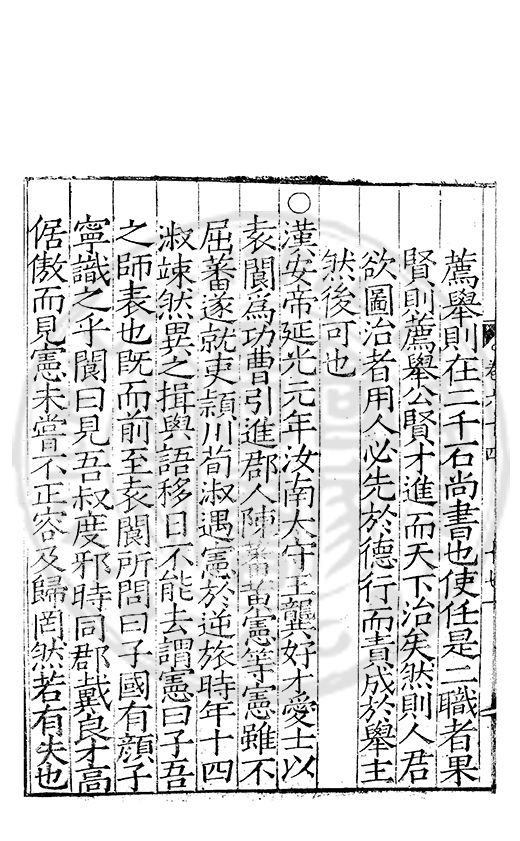 薦舉則在二千石尚書也使任是二職者果
賢則薦舉公賢才進而天下治矣然則人君
欲圖治者用人必先於德行而責成於舉主
然後可也
○漢安帝延光元年汝南太守王龔好才愛士以
袁閬爲功曹引進郡人陳蕃黃憲等憲雖不
屈蕃遂就吏潁川荀淑遇憲於逆旅時年十四
淑竦然異之揖與語移日不能去謂憲曰子吾
之師表也既而前至袁閬所問曰子國有顏子
寧識之乎閬曰見吾叔度邪時同郡戴良才高
倨傲而見憲未嘗不正容及歸罔然若有失也
卷六十四